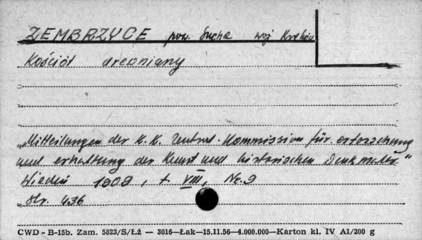 ZEMBRZYCE pow. Sucha woj Kraków
Kościół drewniany
"Mitteilungen der K.K. Zentral-Kommission für erforschung
und erhaltung der Kunst und historischen Denkmäler"
Wiedeń 1909, t VIII, Nr. 9
str. 436
CWD - B-15b. Zam. 5323/S/Łż — 3016—Łak—15.11.56—4.000.000—Karton kl. IV A1/200 g